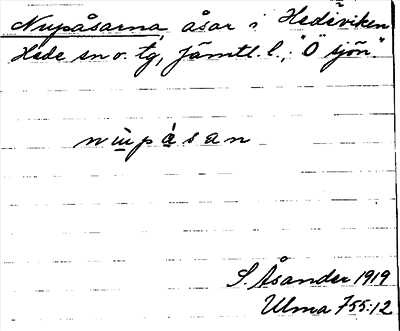 Nupåsarna, åsar i Hedeviken
Hede sn o. tg, Jämtl. l., "Ö sjön".
nupåsan
S. Åsander 1919
Ulma 755:12